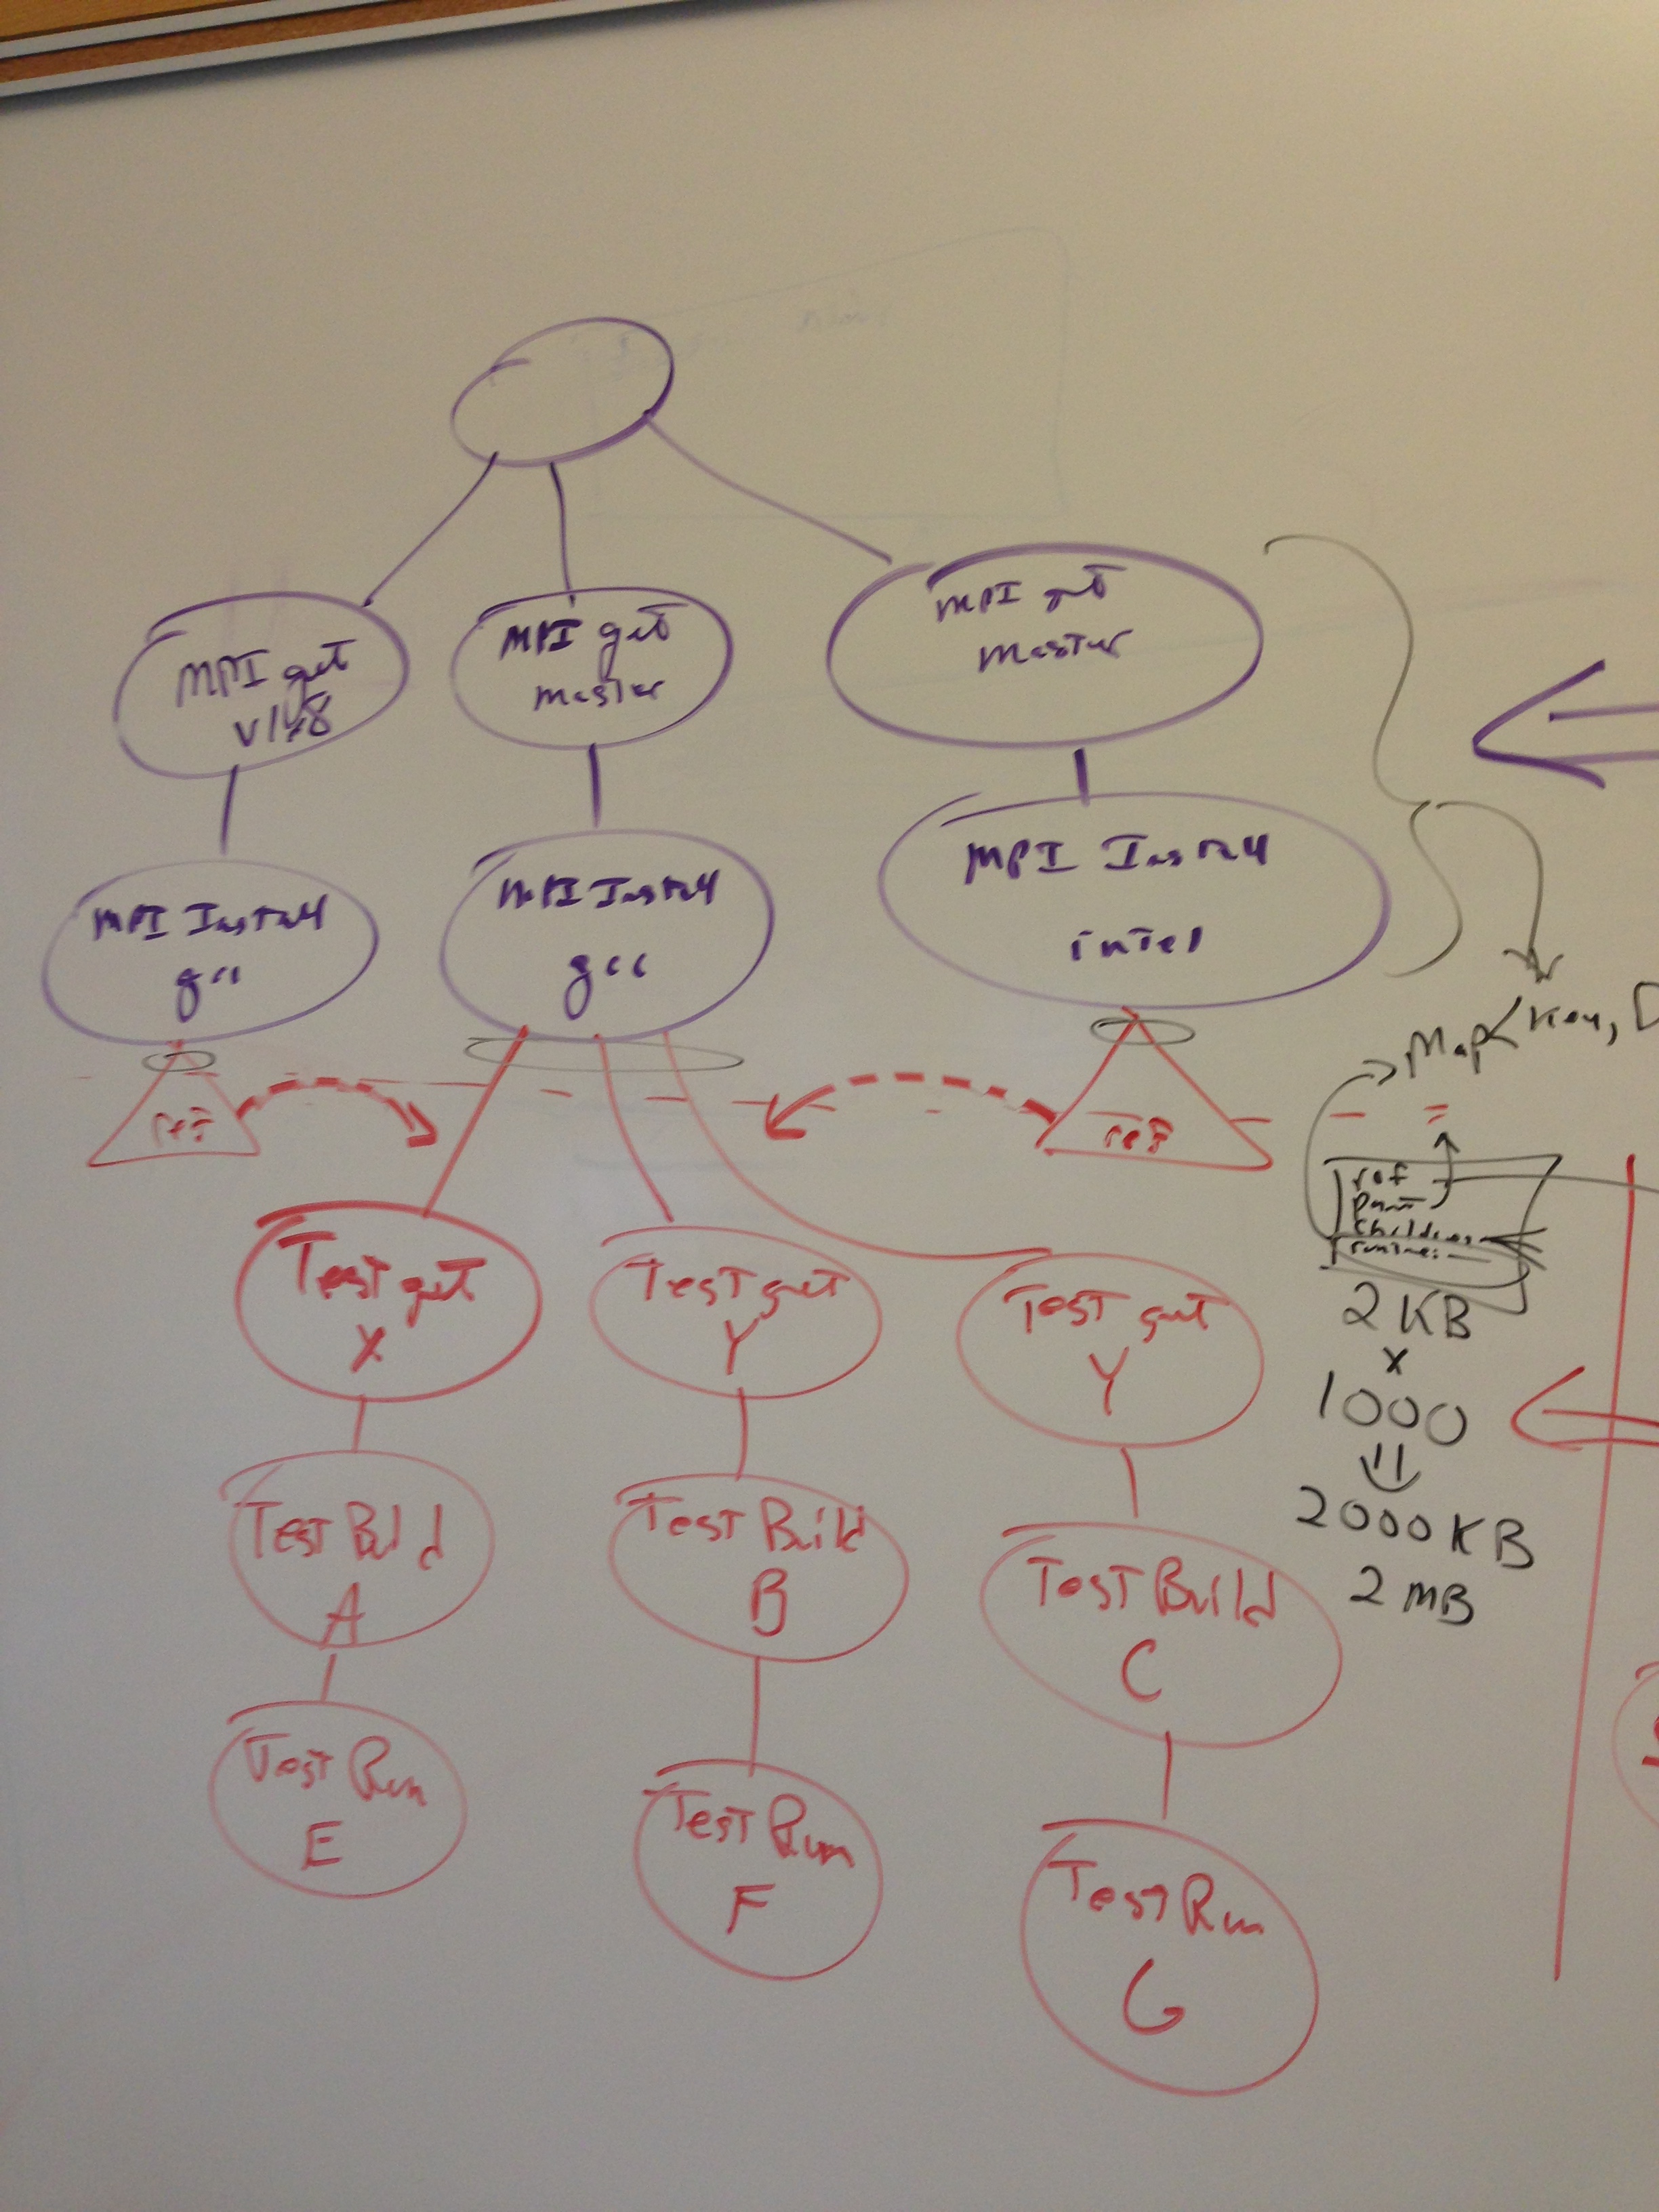 MPI get
v1.8
MPI get
master
MPI get
master
MPI Install
gcc
MPI Install
gcc
MPI Install
intel
Map<Key, D
ref
ref
ref
parent
children
runtime:
2 KB
x
1000
=
2000 KB
2 MB
Test get
X
Test get
Y
Test get
Y
Test Build
A
Test Build
B
Test Build
C
Test Run
E
Test Run
F
Test Run
G